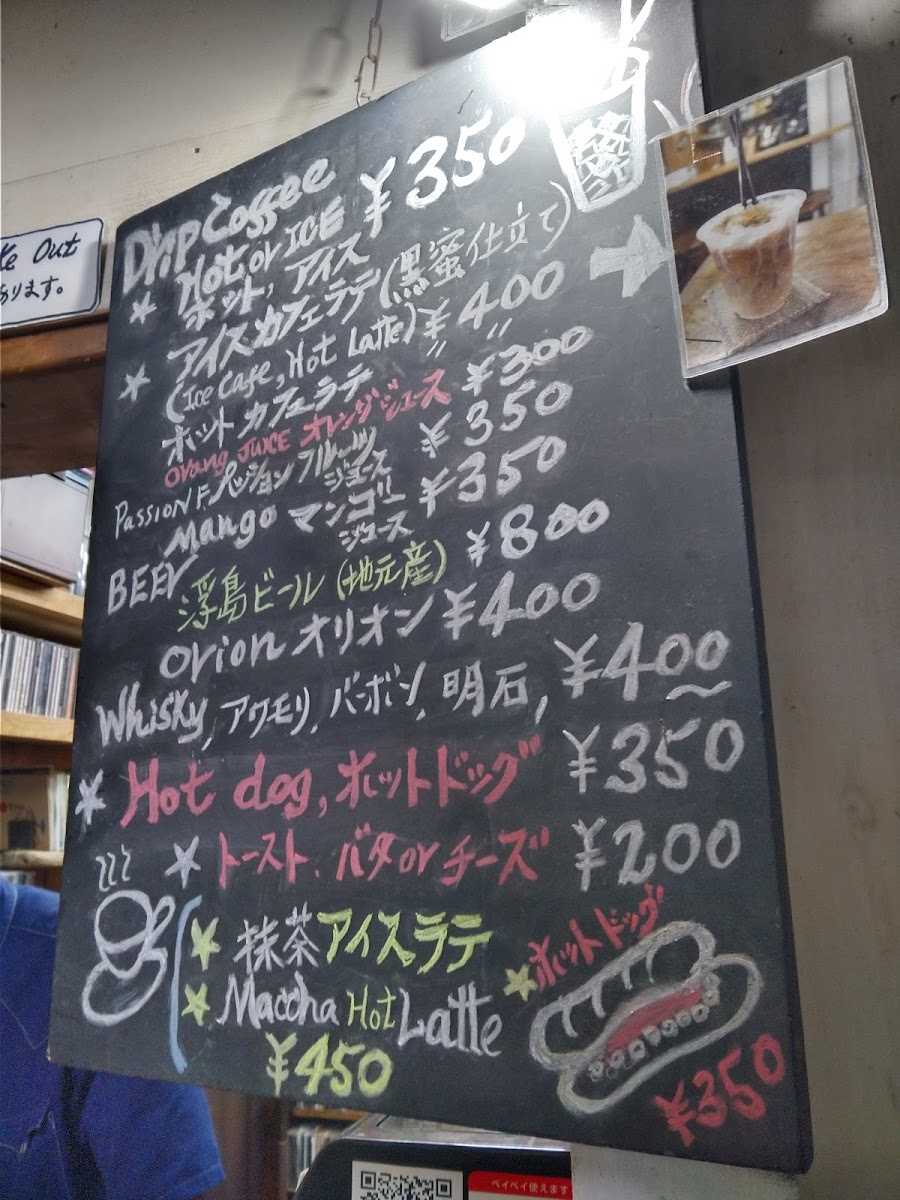 Drip Coffee ¥350
★ Hot or ICE
ホット, アイス
アイスカフェラテ(黒蜜仕立て)
★ (Ice Cafe, Hot Latte) ¥400
ホットカフェラテ 〃 〃
Orang JUICE オレンジジュース ¥300
PASSION F. パッションフルーツジュース ¥350
Mango マンゴージュース ¥350
BEER 浮島ビール(地元産) ¥800
orion オリオン ¥400
Whisky, アワモリ, バーボン, 明石, ¥400〜
★ Hot dog, ホットドッグ ¥350
★ トースト. バタor チーズ ¥200
★ 抹茶アイスラテ
★ Maccha Hot Latte
¥450
★ ホットドッグ
¥350
Out
あります。
ペイペイ使えます